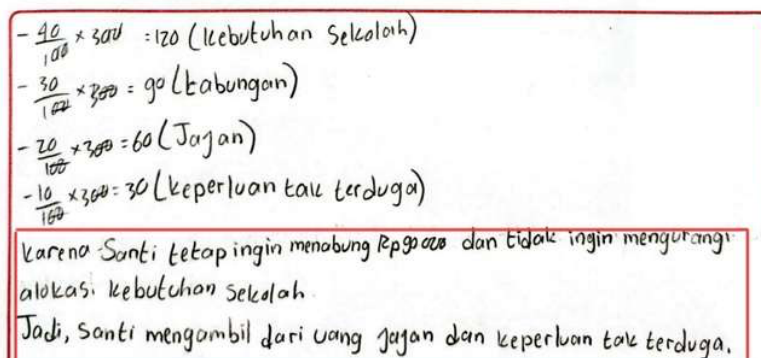 - 40/100 × 300 = 120 (kebutuhan Sekolah)
- 30/100 × 300 = 90 (tabungan)
- 20/100 × 300 = 60 (Jajan)
- 10/100 × 300 = 30 (keperluan tak terduga)
Karena Santi tetap ingin menabung Rp90000 dan tidak ingin mengurangi
alokasi kebutuhan sekolah.
Jadi, Santi mengambil dari uang jajan dan keperluan tak terduga.